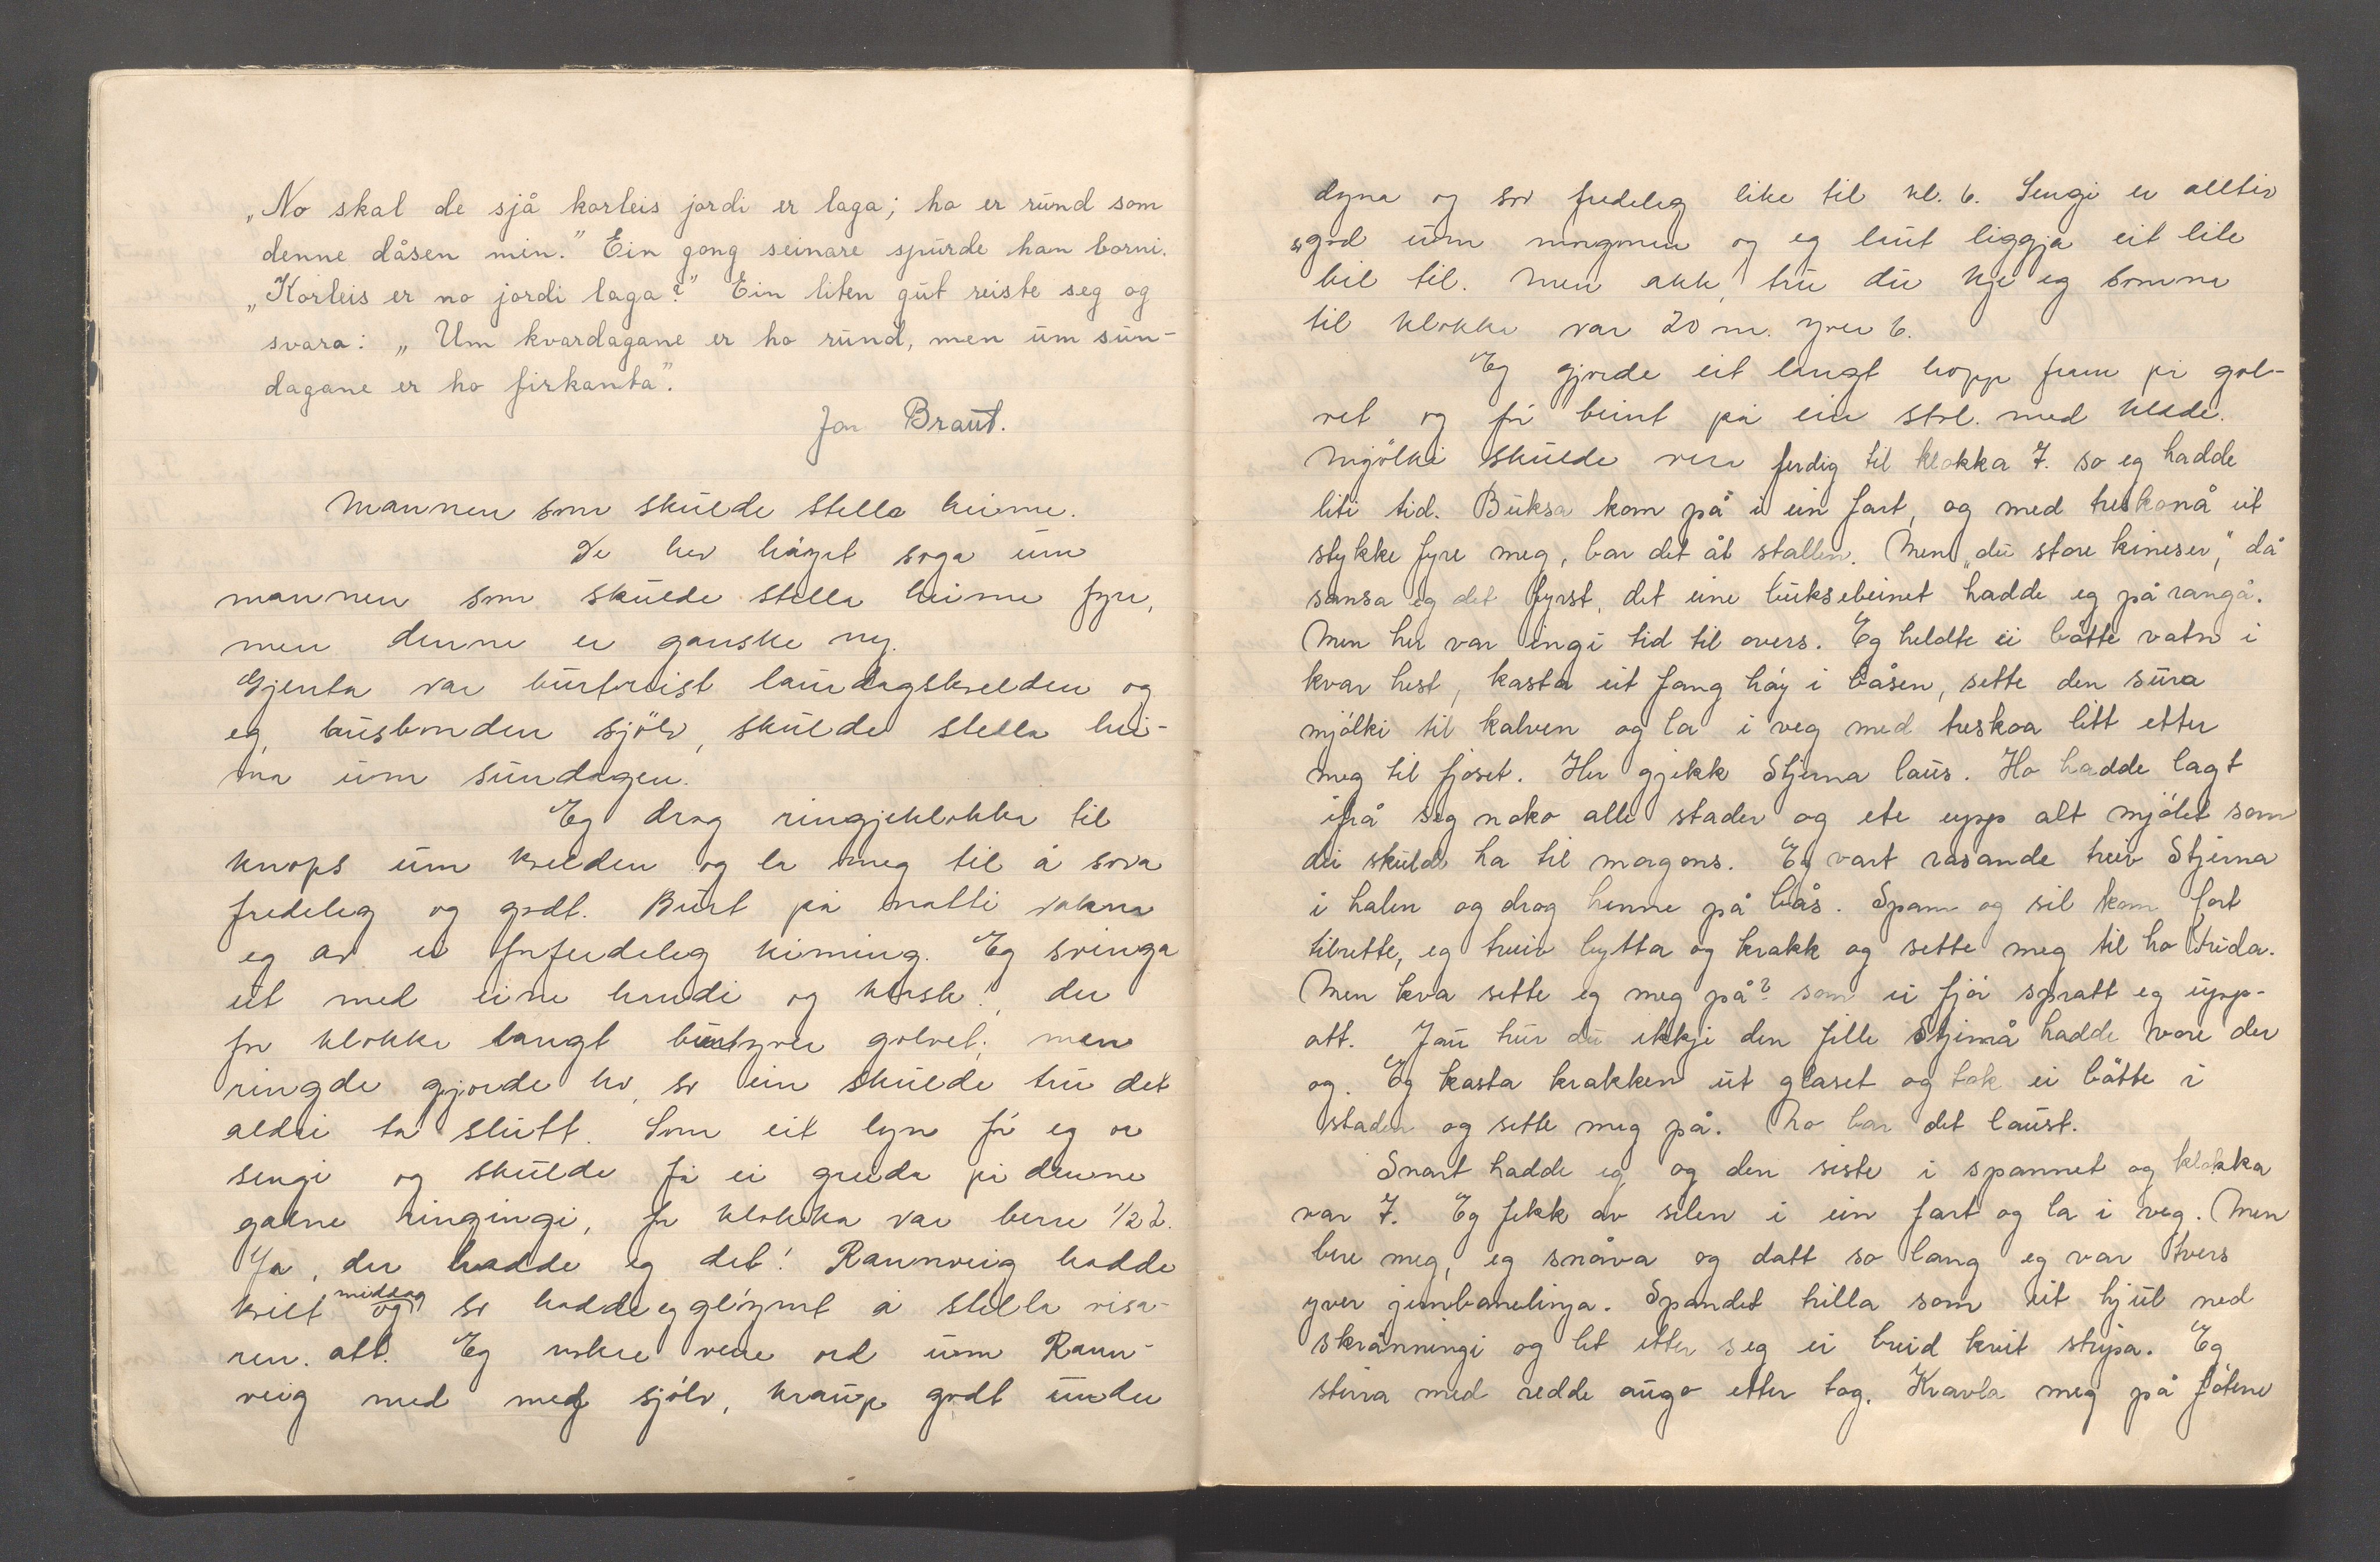 „No skal de sjå korleis jordi er laga; ho er rund som
denne dåsen min.” Ein gong seinare spurde han borni.
„Korleis er no jordi laga?” Ein liten gut reiste seg og
svara: „Um kvardagane er ho rund, men um sun-
dagane er ho firkanta”.
Jon Braut.
Mannen som skulde stella heime.
De hev høyrt soga um
mannen som skulde stella heime fyrr,
men denne er ganske ny.
Gjenta var burtreist laurdagskvelden og
eg, husbonden sjølv, skulde stella hei-
ma um sundagen.
Eg drog ringjeklokka til
knops um kvelden og la meg til å sova
fredeleg og godt. Burt på natti vakna
eg av ei forferdeleg kiming. Eg svinga
ut med eine handi og klask! der
for klokka langt burtyver golvet; men
ringde gjorde ho, so ein skulde tru det
aldri ta slutt. Som eit lyn fór eg or
sengi og skulde få ei greida på denne
galne ringingi, for klokka var berre 1/2 2.
Ja, der hadde eg det! Rannveig hadde
kvilt middag og so hadde eg gløymt å stilla visa-
ren. att. Eg nokre vene ord um Rann-
veig med meg sjølv, kraup godt under
dyna og sov fredeleg like til kl. 6. Sengi er alltid
god um morgonen og eg laut liggja eit lite
bil til. Men akk, tru du kje eg somna
til klokka var 20 m. yver 6.
Eg gjorde eit langt hopp fram på gol-
vet og fór beint på ein stol. med klæde.
Mjølki skulde vera ferdig til klokka 7. so eg hadde
liti tid. Buksa kom på i ein fart, og med treskonå eit
stykke fyre meg, bar det åt stallen. Men „du store kineser,” då
sansa eg det fyrst, det eine buksebeinet hadde eg på rangå.
Men her var ingi tid til overs. Eg heldte ei bøtte vatn i
kvar hest, kasta eit fang høy i båsen, sette den sura
mjølki til kalven og la i veg med treskoa litt etter
meg til fjøset. Her gjekk Stjerna laus. Ho hadde lagt
ifrå seg noko alle stader og ete upp alt mjølet som
dei skulde ha til morgons. Eg vart rasande treiv Stjerna
i halen og drog henne på bås. Spann og sil kom fort
tilrette, eg treiv bytta og krakk og sette meg til ho Frida.
Men kva sette eg meg på? som ei fjør spratt eg upp-
att. Jau trur du ikkje den fille Stjernå hadde vore der
og. Eg kasta krakken ut glaset og tok ei bøtte i
staden og sette meg på. No bar det laust.
Snart hadde eg og den siste i spannet og klokka
var 7. Eg fekk av silen i ein fart og la i veg. Men
bere meg, eg snåva og datt so lang eg var tvers
yver jernbanelinja. Spandet trilla som eit hjul ned
skrånningi og let etter seg ei breid kvit stripa. Eg
stirra med redde augo etter tog. Kravla meg på føtene